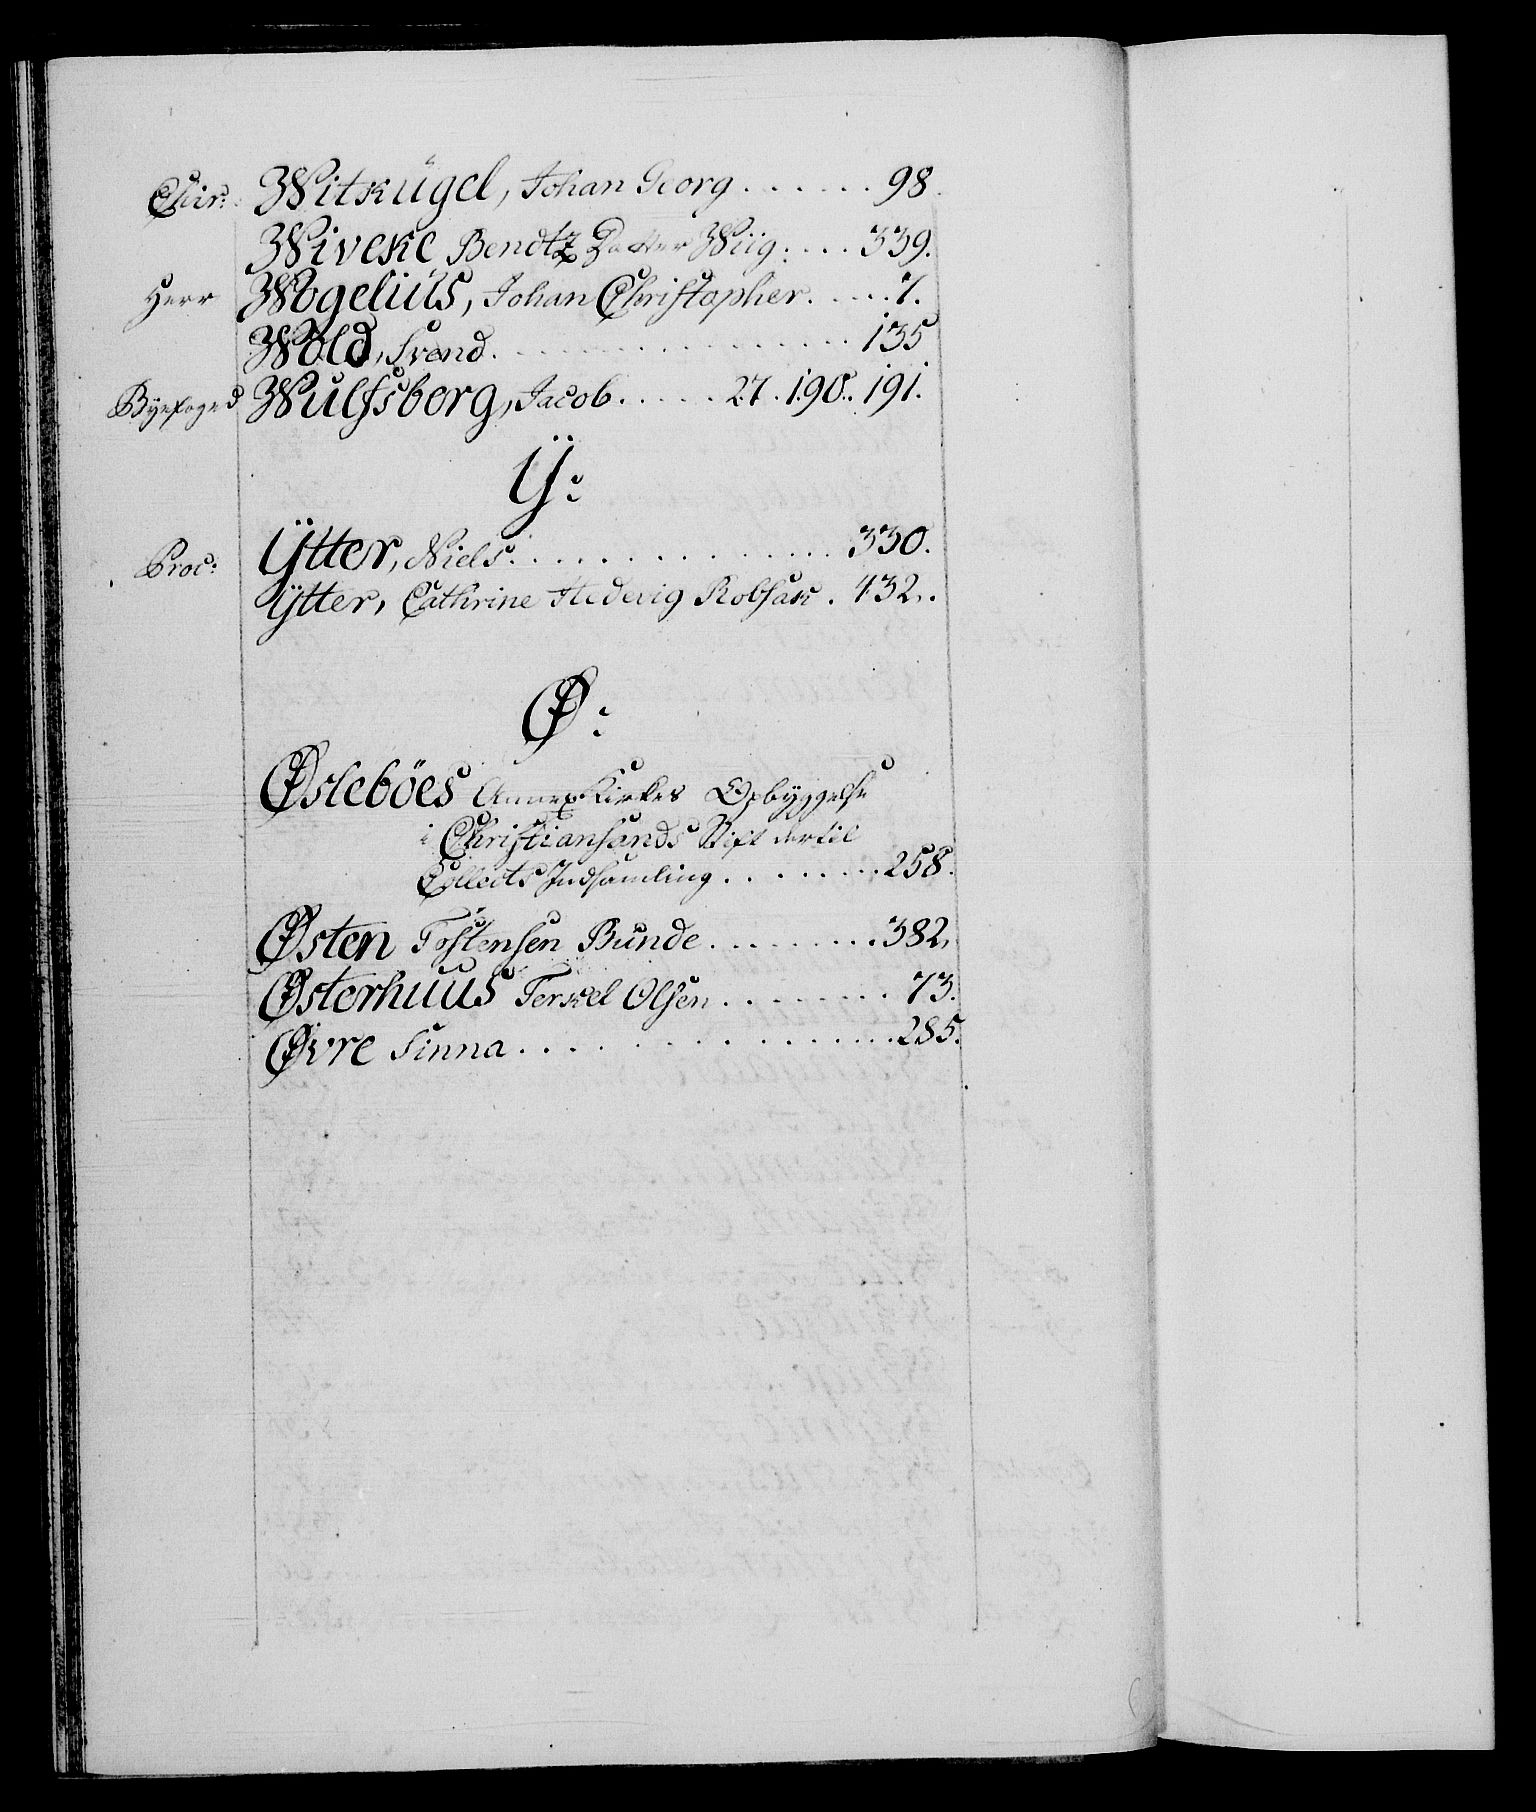 Chir: Witkugel, Johan Georg . . . . . . 98.
Wiveke Bendtz Datter Wiig: . . . . 339.
Herr Wogelius, Johan Christopher . . . . . 7.
Wold, Svend . . . . . . . . . . . . . . . . 135
Byefoged Wulfsberg, Jacob . . . . . 27. 190. 191.
Ÿ:
Proc: Ÿtter, Niels . . . . . . . . . . . . . . 330.
Ÿtter, Cathrine Hedevig Robsak . 432.
Ø:
Øsleböes Annex Kirkes Opbyggelse
i Christiansands Stift dertil
Collects Indsamling . . . . . . . . 258.
Østen Tostensen Bunde . . . . . . . . . 382.
Østerhuus Terkel Olsen . . . . . . . . . 73.
Øvre Sinna . . . . . . . . . . . . . . . . . . 285.